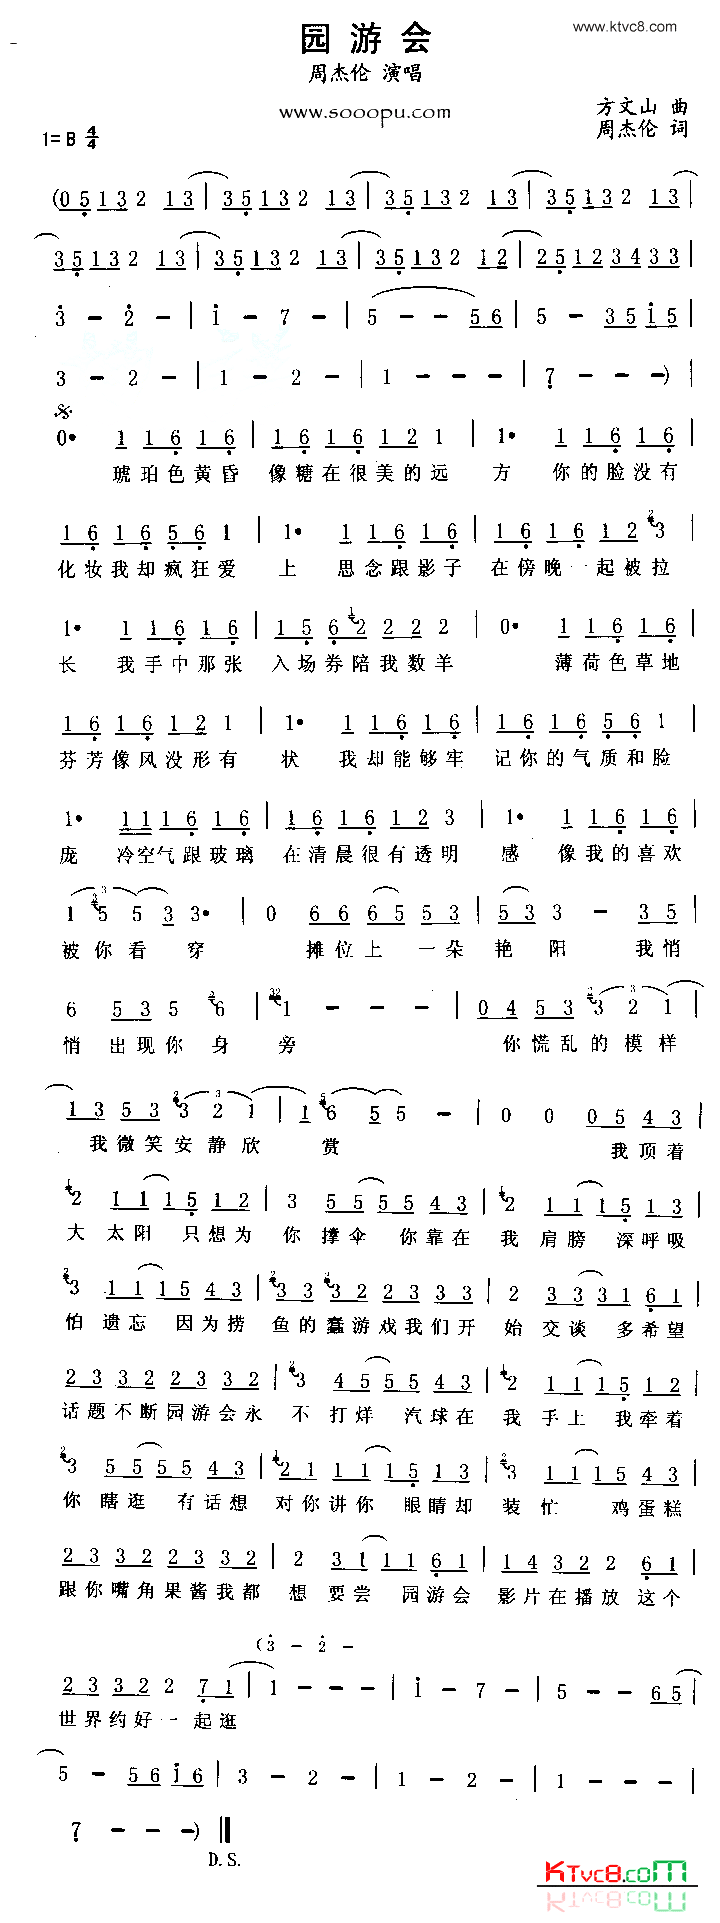 www.ktvc8.com
园游会
周杰伦 演唱
www.sooopu.com
方文山 曲
周杰伦 词
1=B 4/4
(0 5 1 3 2 1 3 | 3 5 1 3 2 1 3 | 3 5 1 3 2 1 3 | 3 5 1 3 2 1 3 |
3 5 1 3 2 1 3 | 3 5 1 3 2 1 3 | 3 5 1 3 2 1 2 | 2 5 1 2 3 4 3 3 |
3 - 2 - | i - 7 - | 5 - - 5 6 | 5 - 3 5 i 5 |
3 - 2 - | 1 - 2 - | 1 - - - | 7 - - -) |
0· 1 1 6 1 6 | 1 6 1 6 1 2 1 | 1· 1 1 6 1 6 |
琥珀色黄昏 像糖在很美的远 方 你的脸没有
1 6 1 6 5 6 1 | 1· 1 1 6 1 6 | 1 6 1 6 1 2 3 |
化妆我却疯狂爱 上 思念跟影子 在傍晚一起被拉
1· 1 1 6 1 6 | 1 5 6 2 2 2 2 | 0· 1 1 6 1 6 |
长 我手中那张 入场券陪我数羊 薄荷色草地
1 6 1 6 1 2 1 | 1· 1 1 6 1 6 | 1 6 1 6 5 6 1 |
芬芳像风没形有 状 我却能够牢 记你的气质和脸
1· 1 1 1 6 1 6 | 1 6 1 6 1 2 3 | 1· 1 6 1 6 |
庞 冷空气跟玻璃 在清晨很有透明 感 像我的喜欢
1 5 5 3 3· | 0 6 6 6 5 5 3 | 5 3 3 - 3 5 |
被你看 穿 摊位上 一朵 艳 阳 我悄
6 5 3 5 6 | 1 - - - | 0 4 5 3 3 2 1 |
悄 出现你 身 旁 你慌乱的模样
1 3 5 3 3 2 1 | 1 6 5 5 - | 0 0 0 5 4 3 |
我微笑安静欣 赏 我顶着
2 1 1 1 5 1 2 | 3 5 5 5 5 4 3 | 2 1 1 1 5 1 3 |
大 太阳 只想为 你 撑伞 你靠在 我 肩膀 深呼吸
3 1 1 1 5 4 3 | 3 3 3 2 2 3 3 3 | 2 3 3 3 1 6 1 |
怕 遗忘 因为捞 鱼的蠢游戏我们开 始 交谈 多希望
2 3 3 2 2 3 3 2 | 3 4 5 5 5 4 3 | 2 1 1 1 5 1 2 |
话题不断园游会永 不 打烊 汽球在 我 手上 我牵着
3 5 5 5 5 4 3 | 2 1 1 1 1 5 1 3 | 3 1 1 1 5 4 3 |
你 瞎逛 有话想 对你讲你 眼睛却 装忙 鸡蛋糕
2 3 3 2 2 3 3 2 | 2 3 1 1 1 6 1 | 1 4 3 2 2 6 1 |
跟你嘴角果酱我都 想 要尝 园游会 影片在播放 这个
(3 - 2 -
2 3 3 2 2 7 1 | 1 - - - | i - 7 - | 5 - - 6 5 |
世界约好一起逛
5 - 5 6 i 6 | 3 - 2 - | 1 - 2 - | 1 - - - |
7 - - -) ‖
D.S.
KTvc8.com